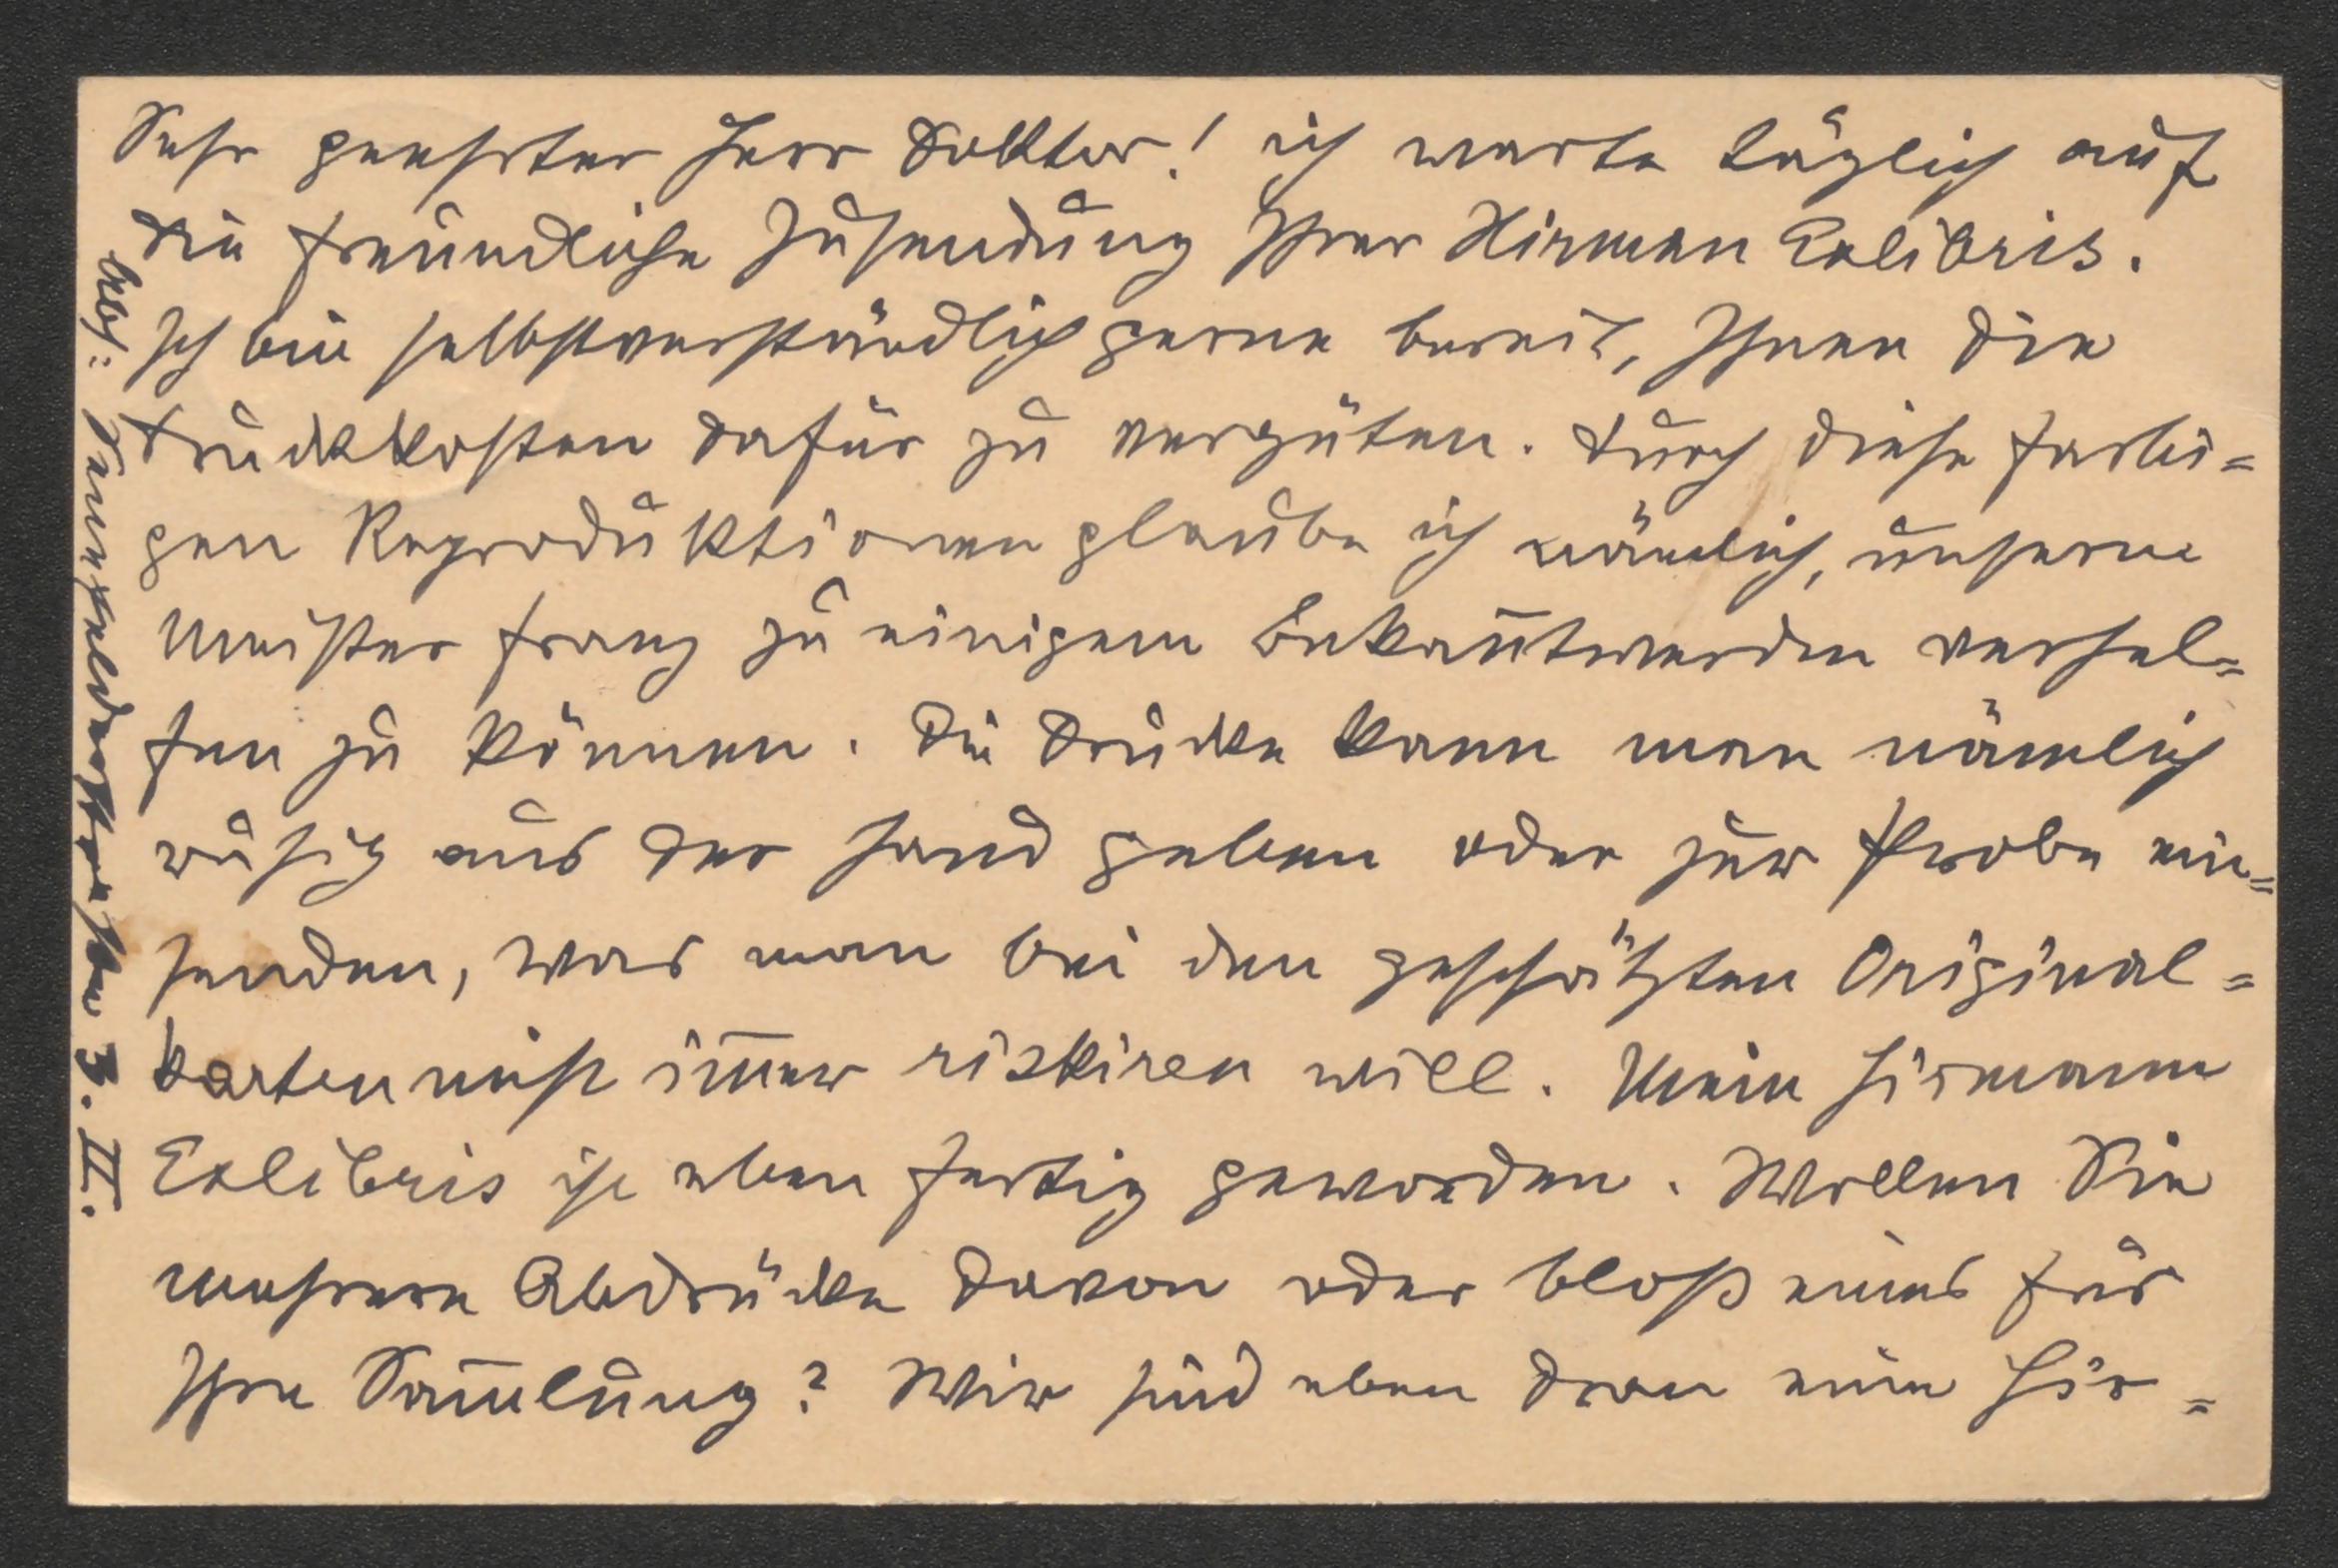 Sehr geehrter Herr Doktor! ich warte täglich auf
die freundliche Zusendung Ihrer Hirmen Exlibris.
Ich bin selbstverständlich gerne bereit, Ihnen die
Druckkosten dafür zu vergüten. Durch diese farbi=
gen Reproduktionen glaube ich nämlich, unserm
Meister Franz zu einigem Bekan̅twerden verhel=
fen zu können. Die Drucke kann man nämlich
ruhig aus der Hand geben oder zur Probe ein=
senden, was man bei den geschätzten Original=
karten nicht im̅er riskiren will. Mein Hirmann
Exlibris ist eben fertig geworden. Wollen Sie
mehrere Abdrücke davon oder bloß eines für
Ihre Sam̅lung? Wir sind eben dran eine Hir=
3. II.